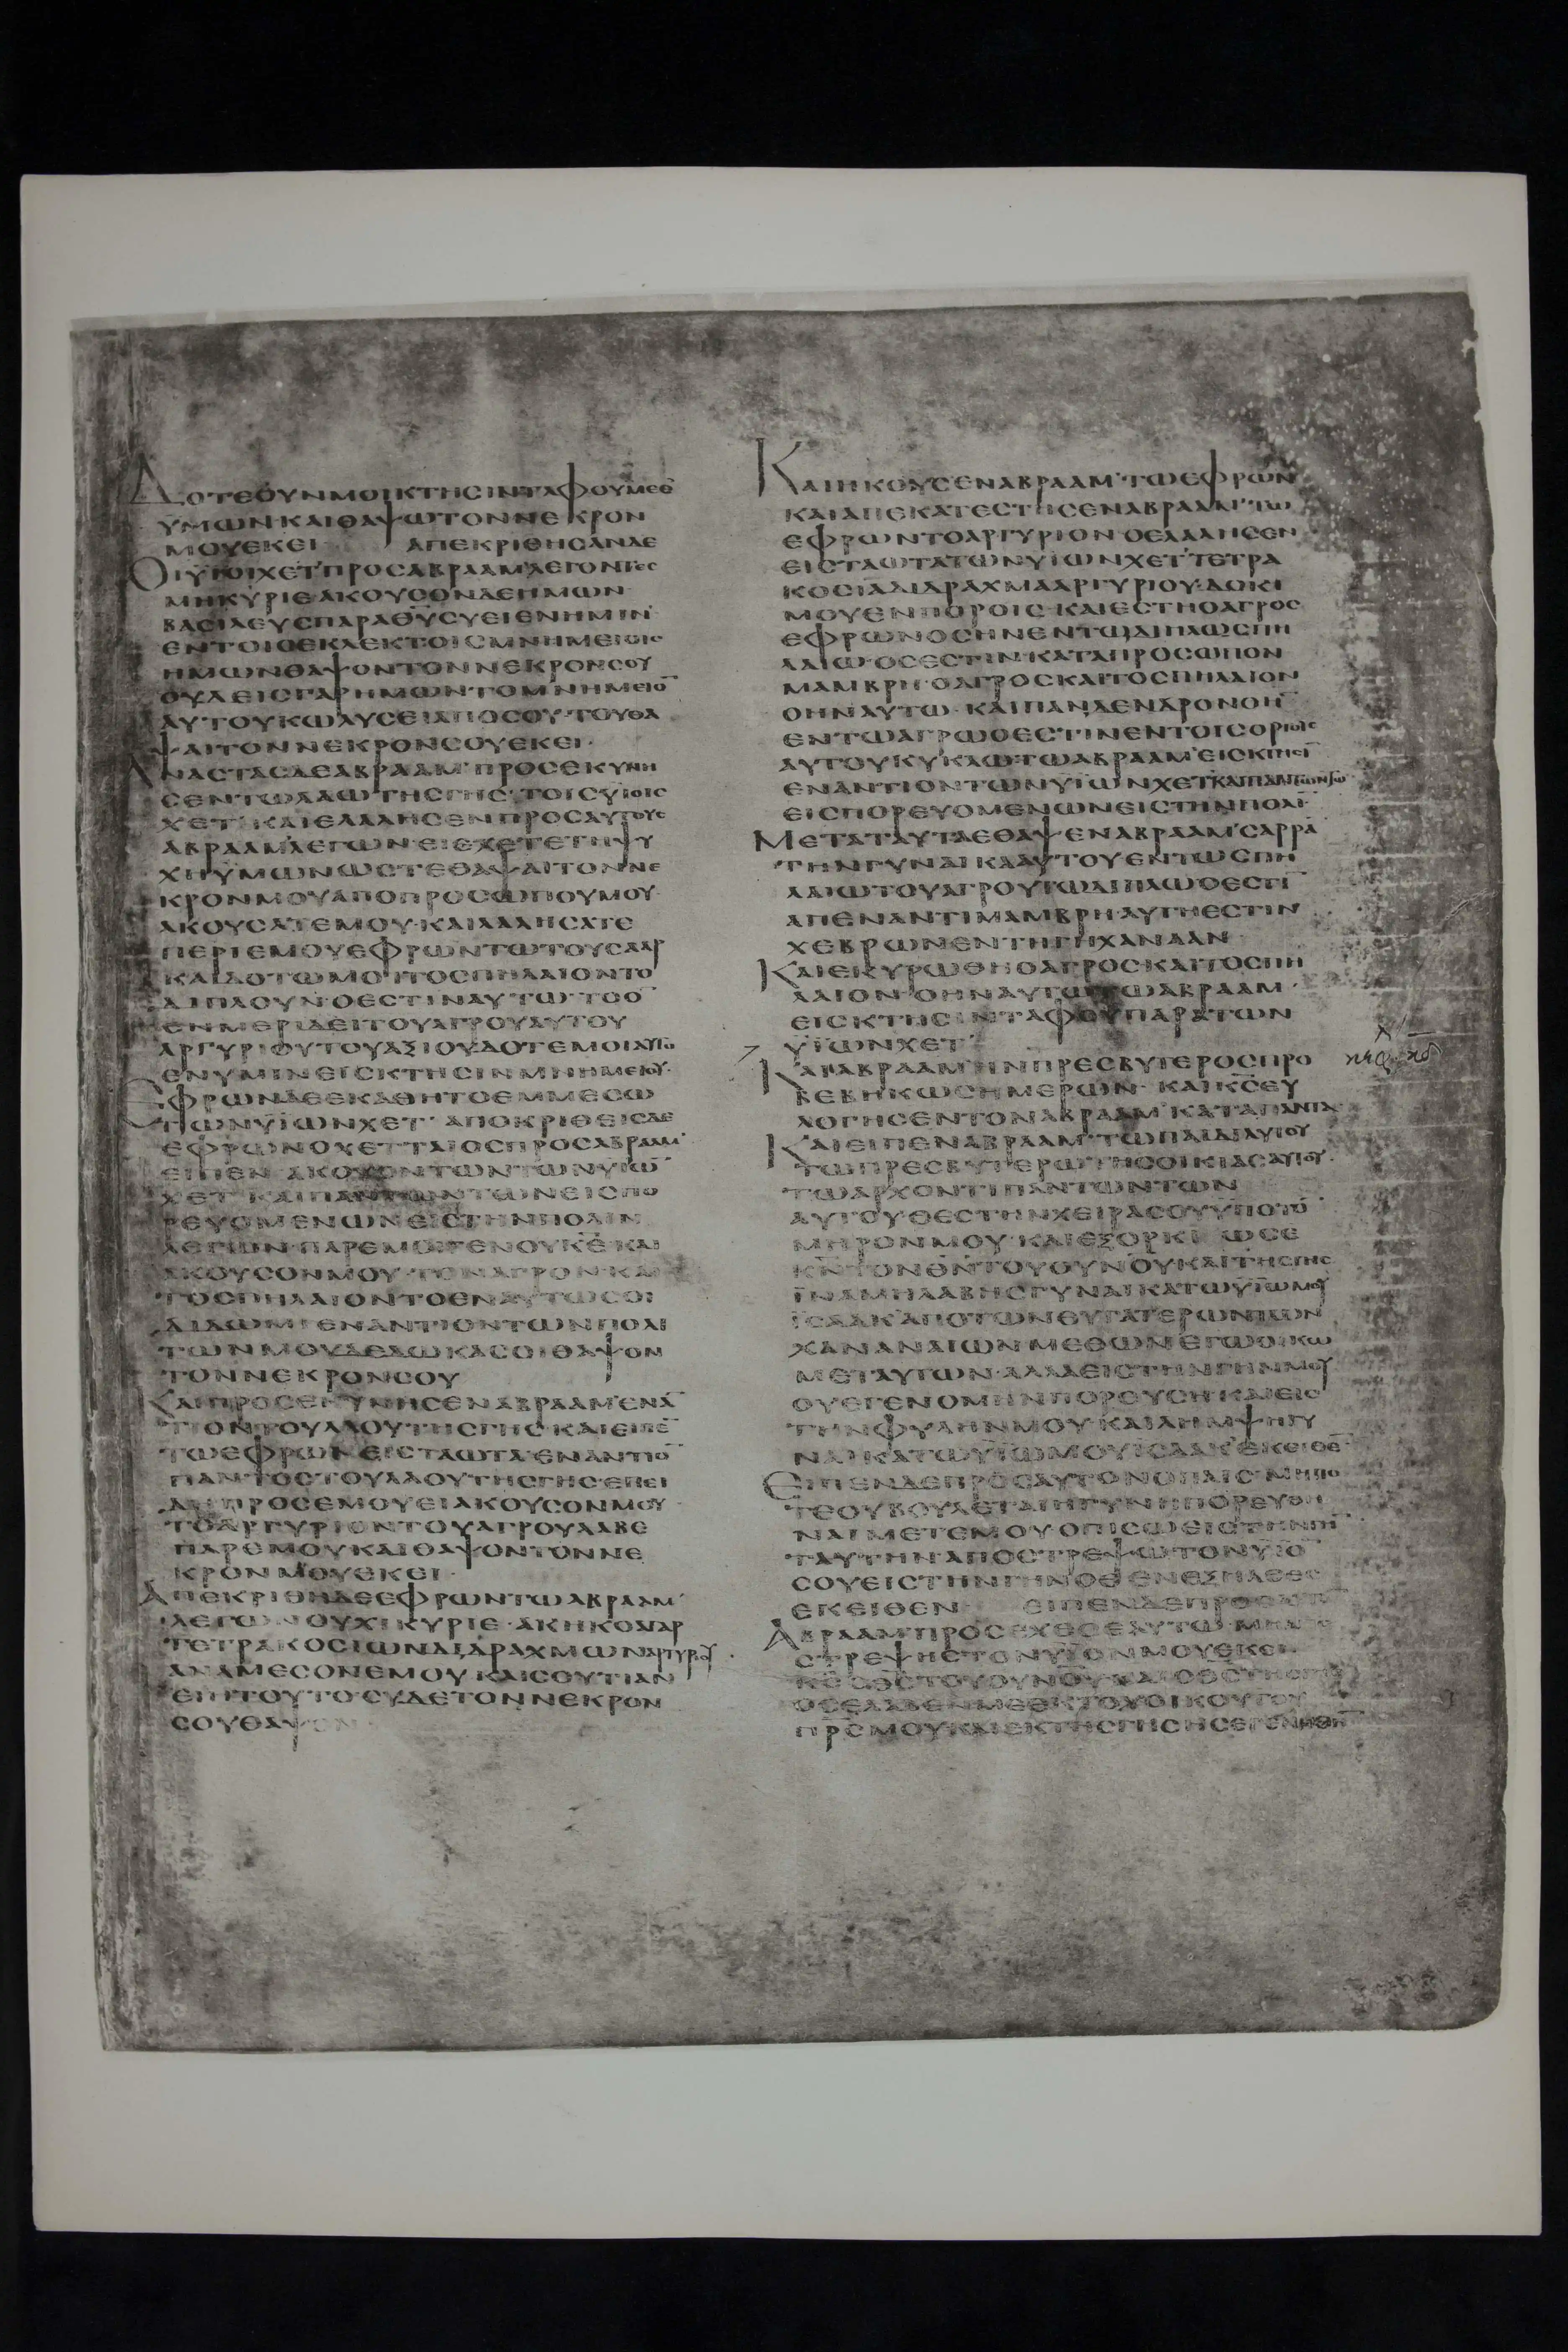 ΔΟΤΕΟΥΝΜΟΙΚΤΗΣΙΝΤΑΦΟΥΜΕΘ
ΥΜΩΝ·ΚΑΙΘΑΨΩΤΟΝΝΕΚΡΟΝ
ΜΟΥΕΚΕΙ ΑΠΕΚΡΙΘΗΣΑΝΔΕ
ΟΙΥΙΟΙΧΕΤ'ΠΡΟΣΑΒΡΑΑΜ'ΛΕΓΟΝΤΕΣ
ΜΗΚΥΡΙΕ·ΑΚΟΥΣΟΝΔΕΗΜΩΝ·
ΒΑΣΙΛΕΥΣΠΑΡΑΘΥΣΥΕΙΕΝΗΜΙΝ·
ΕΝΤΟΙΣΕΚΛΕΚΤΟΙΣΜΝΗΜΕΙΟΙΣ
ΗΜΩΝΘΑΨΟΝΤΟΝΝΕΚΡΟΝΣΟΥ
ΟΥΔΕΙΣΓΑΡΗΜΩΝ·ΤΟΜΝΗΜΕΙΟ̅
ΑΥΤΟΥΚΩΛΥΣΕΙΑΠΟΣΟΥ·ΤΟΥΘΑ
ΨΑΙΤΟΝΝΕΚΡΟΝΣΟΥΕΚΕΙ·
ΑΝΑΣΤΑΣΔΕΑΒΡΑΑΜ'ΠΡΟΣΕΚΥΝΗ
ΣΕΝΤΩΛΑΩΤΗΣΓΗΣ·ΤΟΙΣΥΙΟΙΣ
ΧΕΤ'·ΚΑΙΕΛΑΛΗΣΕΝΠΡΟΣΑΥΤΟΥΣ
ΑΒΡΑΑΜ'ΛΕΓΩΝ·ΕΙΕΧΕΤΕΤΗΨΥ
ΧΗΫΜΩΝΩΣΤΕΘΑΨΑΙΤΟΝΝΕ
ΚΡΟΝΜΟΥΑΠΟΠΡΟΣΩΠΟΥΜΟΥ·
ΑΚΟΥΣΑΤΕΜΟΥ·ΚΑΙΛΑΛΗΣΑΤΕ
ΠΕΡΙΕΜΟΥΕΦΡΩΝΤΩΤΟΥΣΑΑΡ
ΚΑΙΔΟΤΩΜΟΙΤΟΣΠΗΛΑΙΟΝΤΟ
ΔΙΠΛΟΥΝ·ΟΕΣΤΙΝΑΥΤΩ·ΤΟΟ̅
ΕΝΜΕΡΙΔΕΙΤΟΥΑΓΡΟΥΑΥΤΟΥ
ΑΡΓΥΡΙΟΥΤΟΥΑΞΙΟΥΔΟΤΕΜΟΙΑΥΤΟ
ΕΝΥΜΙΝΕΙΣΚΤΗΣΙΝΜΝΗΜΕΙΟΥ·
ΕΦΡΩΝΔΕΕΚΑΘΗΤΟΕΜΜΕΣΩ
ΤΩΝΥΙΩΝΧΕΤ'·ΑΠΟΚΡΙΘΕΙΣΔΕ
ΕΦΡΩΝΟΧΕΤΤΑΙΟΣΠΡΟΣΑΒΡΑΑΜ'
ΕΙΠΕΝ·ΑΚΟΥΟΝΤΩΝΤΩΝΥΙΩ̅
ΧΕΤ'ΚΑΙΠΑΝΤΩΝΤΩΝΕΙΣΠΟ
ΡΕΥΟΜΕΝΩΝΕΙΣΤΗΝΠΟΛΙΝ
ΛΕΓΩΝ·ΠΑΡΕΜΟΙΓΕΝΟΥΚΕ̅·ΚΑΙ
ΑΚΟΥΣΟΝΜΟΥ·ΤΟΝΑΓΡΟΝ·ΚΑΙ
ΤΟΣΠΗΛΑΙΟΝΤΟΕΝΑΥΤΩΣΟΙ
ΔΙΔΩΜΙ·ΕΝΑΝΤΙΟΝΤΩΝΠΟΛΙ
ΤΩΝΜΟΥΔΕΔΩΚΑΣΟΙΘΑΨΟΝ
ΤΟΝΝΕΚΡΟΝΣΟΥ
ΚΑΙΠΡΟΣΕΚΥΝΗΣΕΝΑΒΡΑΑΜ'ΕΝΑ̅
ΤΙΟΝΤΟΥΛΑΟΥΤΗΣΓΗΣ·ΚΑΙΕΙΠΕ̅
ΤΩΕΦΡΩΝΕΙΣΤΑΩΤΑ·ΕΝΑΝΤΙΟ̅
ΠΑΝΤΟΣΤΟΥΛΑΟΥΤΗΣΓΗΣ·ΕΠΕΙ
ΔΗΠΡΟΣΕΜΟΥΕΙΑΚΟΥΣΟΝΜΟΥ
ΤΟΑΡΓΥΡΙΟΝΤΟΥΑΓΡΟΥΛΑΒΕ
ΠΑΡΕΜΟΥΚΑΙΘΑΨΟΝΤΟΝΝΕ
ΚΡΟΝΜΟΥΕΚΕΙ·
ΑΠΕΚΡΙΘΗΔΕΕΦΡΩΝΤΩΑΒΡΑΑΜ'
ΛΕΓΩΝΟΥΧΙΚΥΡΙΕ·ΑΚΗΚΟΑΓΑΡ
ΤΕΤΡΑΚΟΣΙΩΝΔΙΔΡΑΧΜΩΝΑΡΓΥΡΙΟΥ·
ΑΝΑΜΕΣΟΝΕΜΟΥΚΑΙΣΟΥΤΙΑΝ
ΕΙΗΤΟΥΤΟ·ΣΥΔΕΤΟΝΝΕΚΡΟΝ
ΣΟΥΘΑΨΟΝ
ΚΑΙΗΚΟΥΣΕΝΑΒΡΑΑΜ'ΤΩΕΦΡΩΝ
ΚΑΙΑΠΕΚΑΤΕΣΤΗΣΕΝΑΒΡΑΑΜ'ΤΩ
ΕΦΡΩΝΤΟΑΡΓΥΡΙΟΝ·ΟΕΛΑΛΗΣΕΝ
ΕΙΣΤΑΩΤΑΤΩΝΥΙΩΝΧΕΤ'ΤΕΤΡΑ
ΚΟΣΙΑΔΙΔΡΑΧΜΑΑΡΓΥΡΙΟΥ·ΔΟΚΙ
ΜΟΥΕΝΠΟΡΟΙΣ·ΚΑΙΕΣΤΗΟΑΓΡΟΣ
ΕΦΡΩΝΟΣΗΝΕΝΤΩΔΙΠΛΩΣΠΗ
ΛΑΙΩ·ΟΣΕΣΤΙΝ·ΚΑΤΑΠΡΟΣΩΠΟΝ
ΜΑΜΒΡΗ·ΟΑΓΡΟΣΚΑΙΤΟΣΠΗΛΑΙΟΝ
ΟΗΝΑΥΤΩ·ΚΑΙΠΑΝΔΕΝΔΡΟΝΟΗ̅
ΕΝΤΩΑΓΡΩΟΕΣΤΙΝΕΝΤΟΙΣΟΡΙΟΙΣ
ΑΥΤΟΥΚΥΚΛΩ·ΤΩΑΒΡΑΑΜ'ΕΙΣΚΤΗΣΙ̅
ΕΝΑΝΤΙΟΝΤΩΝΥΙΩΝΧΕΤ'ΚΑΙΠΑΝΤΩΝΤΩ̅
ΕΙΣΠΟΡΕΥΟΜΕΝΩΝΕΙΣΤΗΝΠΟΛΙ̅
ΜΕΤΑΤΑΥΤΑΕΘΑΨΕΝΑΒΡΑΑΜ'ΣΑΡΡΑ̅
ΤΗΝΓΥΝΑΙΚΑΑΥΤΟΥΕΝΤΩΣΠΗ
ΛΑΙΩΤΟΥΑΓΡΟΥΤΩΔΙΠΛΩΟΕΣΤΙ̅
ΑΠΕΝΑΝΤΙΜΑΜΒΡΗ·ΑΥΤΗΕΣΤΙΝ
ΧΕΒΡΩΝΕΝΤΗΓΗΧΑΝΑΑΝ
ΚΑΙΕΚΥΡΩΘΗΟΑΓΡΟΣΚΑΙΤΟΣΠΗ
ΛΑΙΟΝ·ΟΗΝΑΥΤΩΤΩΑΒΡΑΑΜ·
ΕΙΣΚΤΗΣΙΝΤΑΦΟΥΠΑΡΑΤΩΝ
ΥΙΩΝΧΕΤ'
ΚΑΙΑΒΡΑΑΜΗΝΠΡΕΣΒΥΤΕΡΟΣΠΡΟ
ΒΕΒΗΚΩΣΗΜΕΡΩΝ·ΚΑΙΚ̅Σ̅ΕΥ
ΛΟΓΗΣΕΝΤΟΝΑΒΡΑΑΜ'ΚΑΤΑΠΑΝΤΑ
ΚΑΙΕΙΠΕΝΑΒΡΑΑΜ'ΤΩΠΑΙΔΙΑΥΤΟΥ
ΤΩΠΡΕΣΒΥΤΕΡΩΤΗΣΟΙΚΙΑΣΑΥΤΟΥ·
ΤΩΑΡΧΟΝΤΙΠΑΝΤΩΝΤΩΝ
ΑΥΤΟΥ·ΘΕΣΤΗΝΧΕΙΡΑΣΟΥΫΠΟΤΟ̅
ΜΗΡΟΝΜΟΥ·ΚΑΙΕΞΟΡΚΙΩΣΕ
Κ̅Ν̅ΤΟΝΘ̅Ν̅ΤΟΥΟΥ̅Ν̅Ο̅Υ̅ΚΑΙΤΗΣΓΗΣ
ΪΝΑΜΗΛΑΒΗΣΓΥΝΑΙΚΑΤΩΫΙΩΜΟΥ
ΙΣΑΑΚ'ΑΠΟΤΩΝΘΥΓΑΤΕΡΩΝΤΩΝ
ΧΑΝΑΝΑΙΩΝ·ΜΕΘΩΝΕΓΩΟΙΚΩ
ΜΕΤΑΥΤΩΝ·ΑΛΛΑΕΙΣΤΗΝΓΗΝΜΟΥ
ΟΥΕΓΕΝΟΜΗΝΠΟΡΕΥΣΗ·ΚΑΙΕΙΣ
ΤΗΝΦΥΛΗΝΜΟΥ·ΚΑΙΛΗΜΨΗΓΥ
ΝΑΙΚΑΤΩΥΙΩΜΟΥΙΣΑΑΚ'ΕΚΕΙΘΕ̅·
ΕΙΠΕΝΔΕΠΡΟΣΑΥΤΟΝΟΠΑΙΣ·ΜΗΠΟ
ΤΕΟΥΒΟΥΛΕΤΑΙΗΓΥΝΗΠΟΡΕΥΘΗ
ΝΑΙΜΕΤΕΜΟΥΟΠΙΣΩΕΙΣΤΗΝΓΗ̅
ΤΑΥΤΗΝΑΠΟΣΤΡΕΨΩΤΟΝΥΙΟ̅
ΣΟΥΕΙΣΤΗΝΓΗΝΟΘΕΝΕΞΗΛΘΕΣ
ΕΚΕΙΘΕΝ ΕΙΠΕΝΔΕΠΡΟΣΑΥΤΟ̅
ΑΒΡΑΑΜ'ΠΡΟΣΕΧΕΣΕΑΥΤΩ·ΜΗΑΠΟ
ΣΤΡΕΨΗΣΤΟΝΥΙΟΝΜΟΥΕΚΕΙ·
Κ̅Σ̅Ο̅Θ̅Σ̅ΤΟΥΟΥ̅Ν̅Ο̅Υ̅ΚΑΙΟΘ̅Σ̅ΤΗΣΓΗΣ
ΟΣΕΛΑΒΕΝΜΕΕΚΤΟΥΟΙΚΟΥΤΟΥ
Π̅Ρ̅Σ̅ΜΟΥΚΑΙΕΚΤΗΣΓΗΣΗΣΕΓΕΝΗΘΗ̅